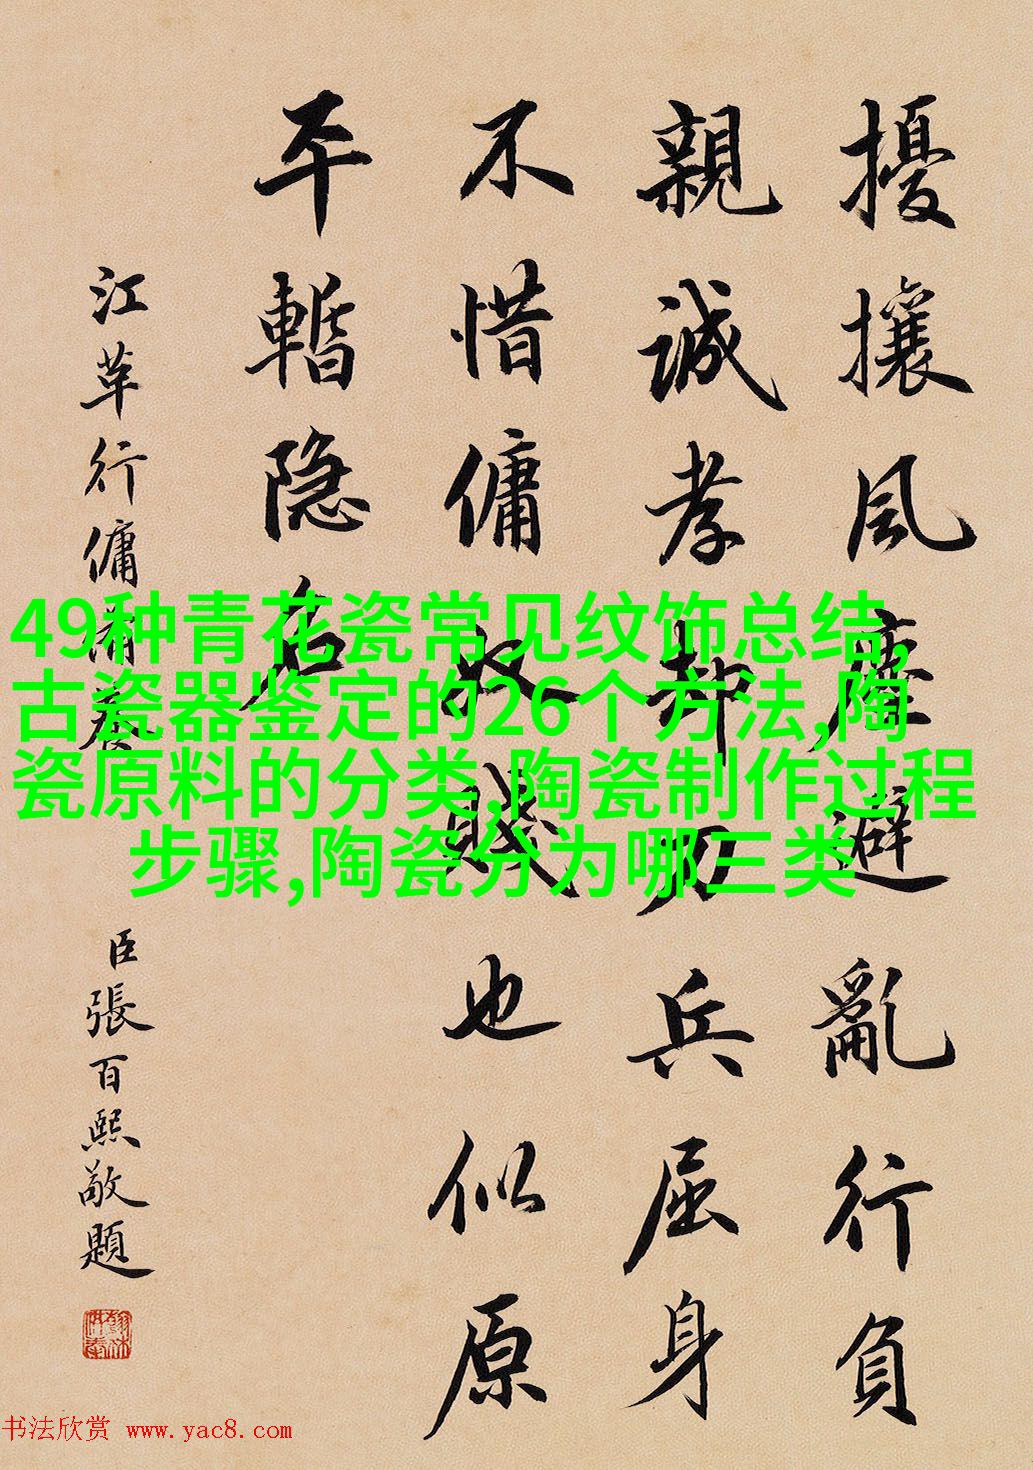 擾攘風塵避亂行負
親誠孝却刀兵屈身
不惜傭奴賤也似原
平暫隐名
江革行傭供養
臣張百熙敬題
49种青花瓷常见纹饰总结,
古瓷器鉴定的26个方法,陶
瓷原料的分类,陶瓷制作过程
步骤,陶瓷分为哪三类
书法欣赏 www.yac8.com